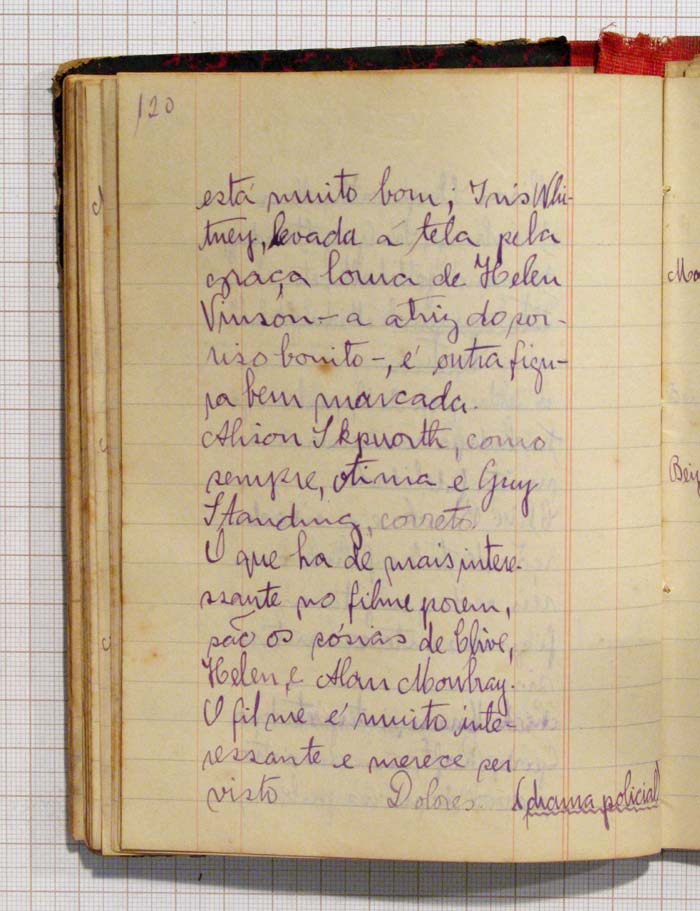 120
está muito bom; Iris Whi-
tney, levada á tela pela
graça loura de Helen
Vinsón - a atriz do sor-
riso bonito -, é outra figu-
ra bem marcada.
Alison Skpworth, como
sempre, otima e Guy
Standing, correto
O que ha de mais intere-
ssante no filme porem,
são os sósias de Clive,
Helen, e Alan Mowbray.
O filme é muito inte-
ressante e merece ser
visto Dolores. (drama policial)
Ma
Bei